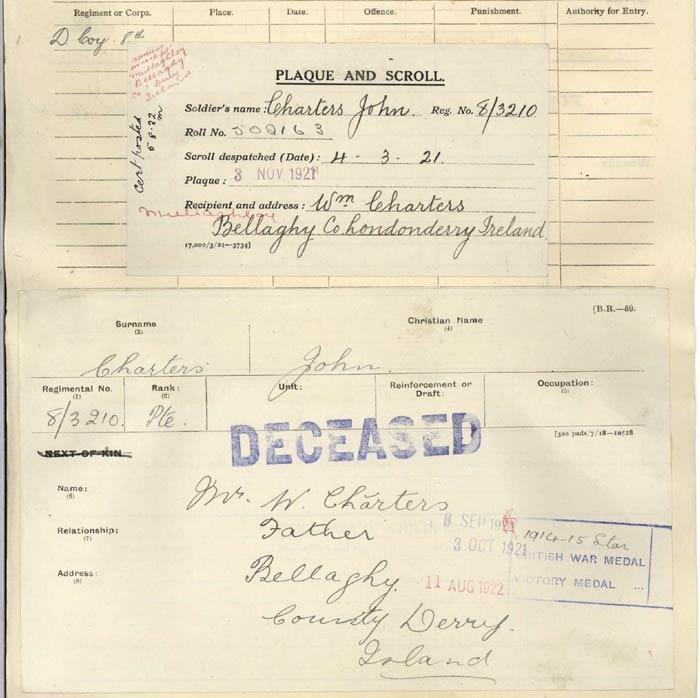 Regiment or Corps. Place. Date. Offence. Punishment. Authority for Entry.
D Coy. 8th
Mullaghboy
Bellaghy
Co. Derry
Ireland
Cert posted
5.8.22
PLAQUE AND SCROLL.
Soldier's name: Charters John. Reg. No. 8/3210
Roll No. 502163
Scroll despatched (Date): 4 - 3 - 21.
Plaque: 3 NOV 1921
Recipient and address: Wm Charters
Mullaghboy
Bellaghy Co. Londonderry Ireland.
17,000/3/21—3734]
[B.R.—59.
Surname Christian Name
(3) (4)
Charters John.
Regimental No. Rank: Unit: Reinforcement or Occupation:
(1) (2) Draft: (5)
8/3210. Pte.
DECEASED
[300 pads/7/18—10528
NEXT-OF-KIN
Name: Mr. W. Charters
(6)
SEP 1921
Relationship: Father
(7)
3 OCT 1921
1914-15 Star
BRITISH WAR MEDAL
Address: Bellaghy.
(8)
11 AUG 1922
VICTORY MEDAL ...
County Derry.
Ireland